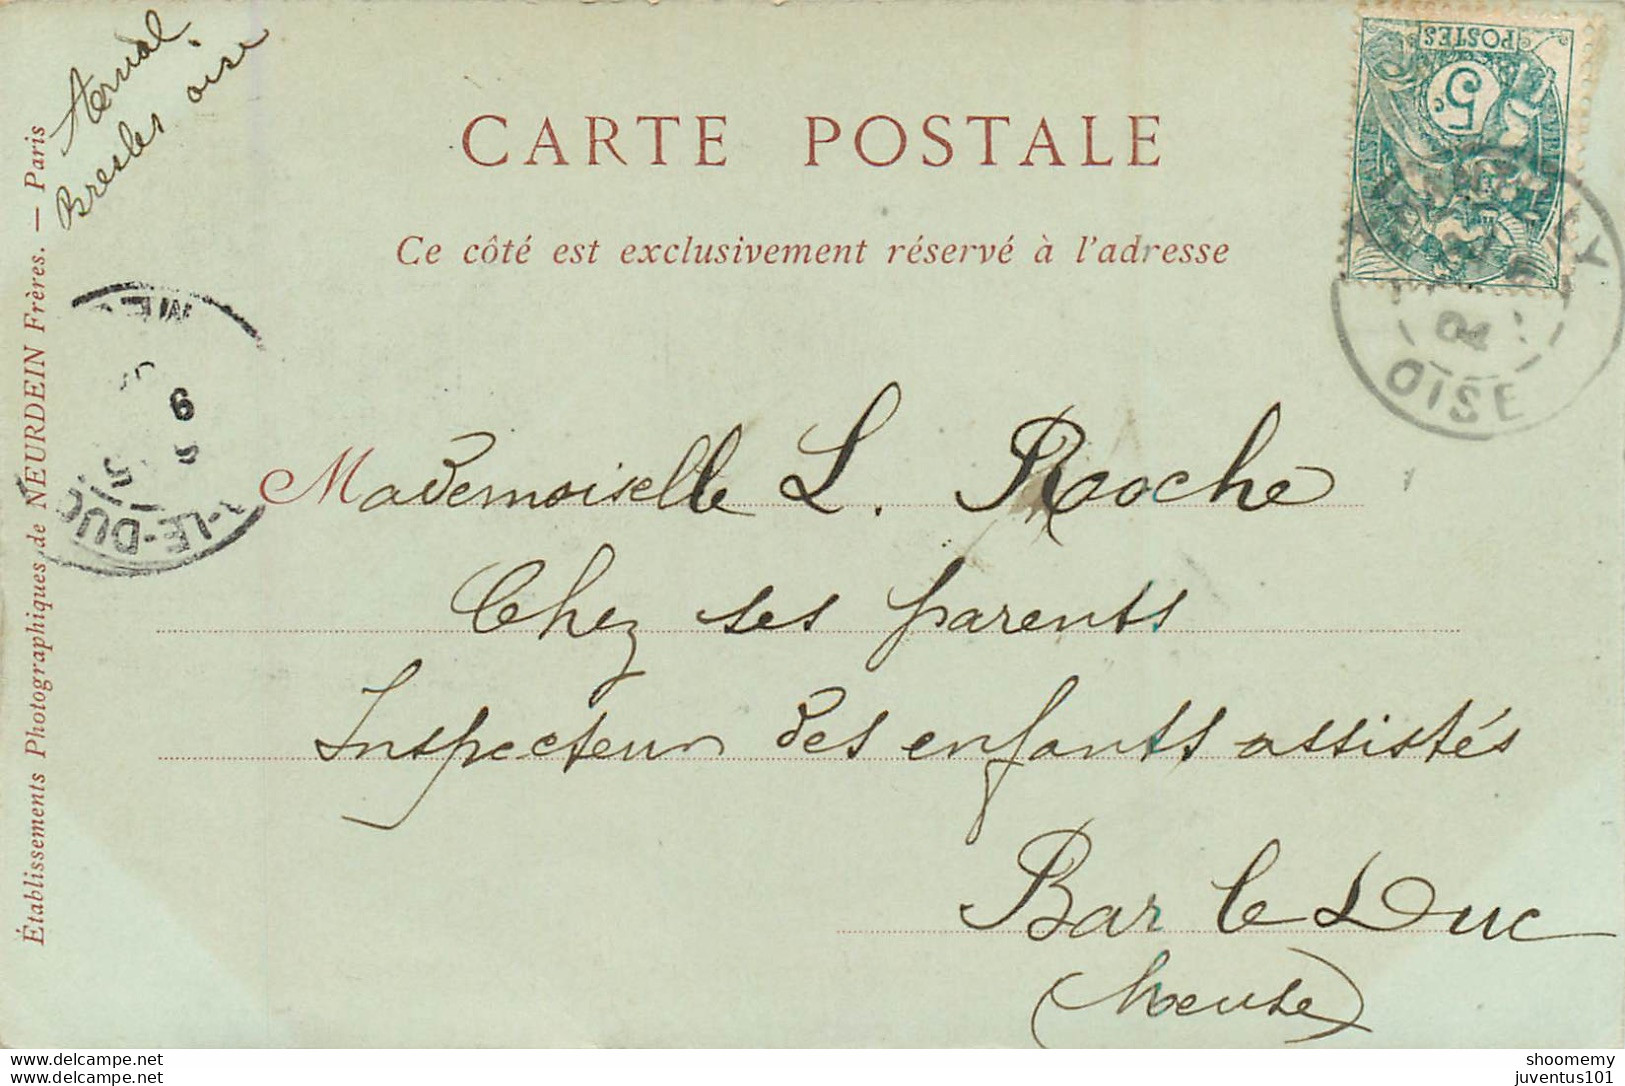 Aernal.
Bresles oise
CARTE POSTALE
Ce côté est exclusivement réservé à l'adresse
POSTES
5c
04
OISE
6
5
-LE-DUC
Mademoiselle L. Roche
Chez ses parents
Inspecteur des enfants assistés
Bar le Duc
(Meuse)
Établissements Photographiques de NEURDEIN Frères. — Paris
delcampe.net
delcampe.net
shoomemy
juventus101